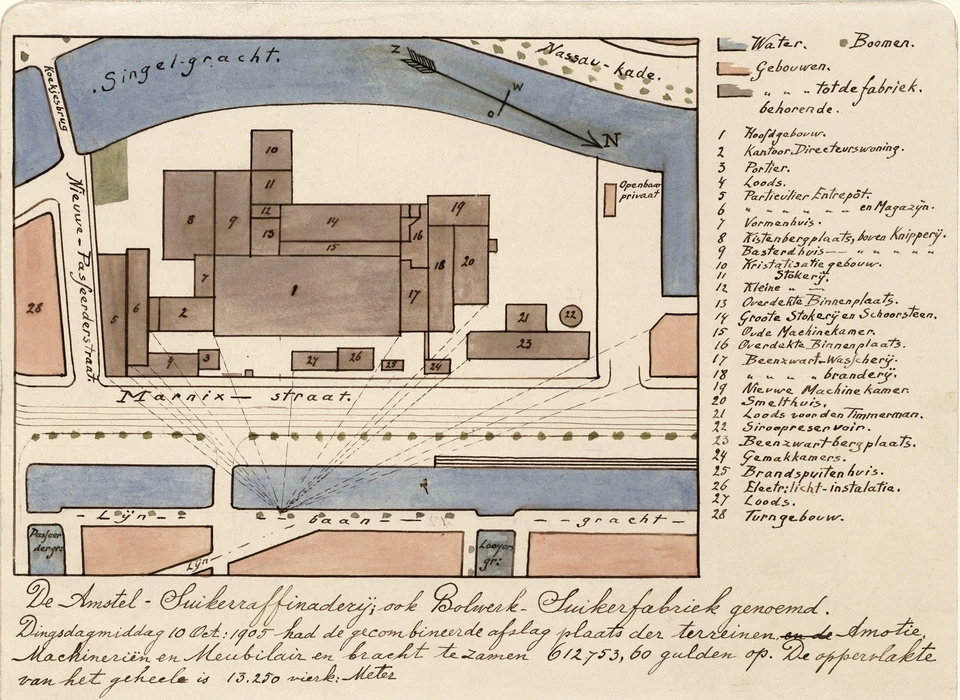 Singel-gracht.
Nassau-kade.
Koekjesbrug
Z
W
O
N
Nieuwe-Passeerderstraat.
Openbaar
privaat
10
11
12
13
8
9
14
15
16
19
18
20
17
7
1
6
5
2
4
3
27
26
25
24
21
22
23
28
Marnix-straat.
-Lijn-baan-gracht-
Passeer
dergr:
Lijn
Looyer
gr:
Water.
Boomen.
Gebouwen.
" " " tot de fabriek.
behorende.
1 Hoofdgebouw.
2 Kantoor.Directeurswoning.
3 Portier.
4 Loods.
5 Particulier Entrepôt.
6 " " " " " en Magazijn.
7 Vormenhuis.
8 Kistenbergplaats, boven Knipperij.
9 Basterdhuis — " " " " "
10 Kristalisatie gebouw.
11 Stokerij.
12 Kleine " —
13 Overdekte Binnenplaats.
14 Groote Stokerij en Schoorsteen.
15 Oude Machinekamer.
16 Overdekte Binnenplaats.
17 Beenzwart-Wasscherij.
18 " " " " branderij.
19 Nieuwe Machinekamer
20 Smelthuis.
21 Loods voor den Timmerman.
22 Siroopreservoir.
23 Beenzwartbergplaats.
24 Gemakkamers.
25 Brandspuitenhuis.
26 Electr: licht-instalatie.
27 Loods.
28 Turngebouw.
De Amstel-Suikerraffinaderij; ook Bolwerk-Suikerfabriek genoemd.
Dingsdagmiddag 10 Oct: 1905 had de gecombineerde afslag plaats der terreinen, en de Amotie,
Machineriën en Meubilair en bracht te zamen 612753,60 gulden op. De oppervlakte
van het geheele is 13.250 vierk: Meter